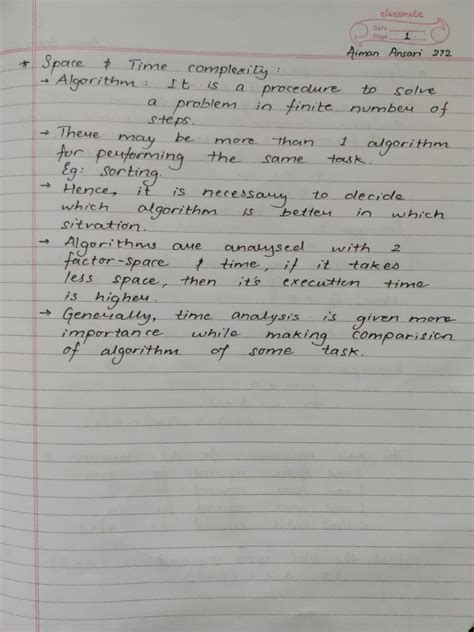 classmate
Date
Page 1
Aiman Ansari 272
* Space & Time complexity :
→ Algorithm : It is a procedure to solve
a problem in finite number of
steps.
→ There may be more than 1 algorithm
for performing the same task.
Eg: sorting.
→ Hence, it is necessary to decide
which algorithm is better in which
sitvation.
→ Algorithms are analysed with 2
factor-space & time, if it takes
less space, then it's execution time
is higher.
→ Generally, time analysis is given more
importance while making comparision
of algorithm of some task.